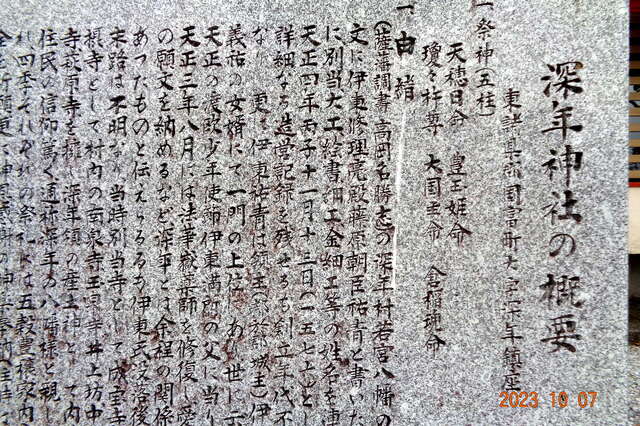 深年神社の概要
東諸県郡国富町大字深年鎮座
一 祭神(五柱)
天穂日命 豊玉姫命
瓊々杵尊 大国主命 倉稲魂命
一 由緒
(薩藩調書)高岡名勝志の深年村若宮八幡の
文に伊東修理亮殿藤原朝臣祐青と書いた
に別当大工絵書細工金細工等の姓名を連
天正四年丙子十一月十三日(一五七六)とし
詳細なる造営記録を残せるも創立年代不
なり 更に伊東祐青は領主(都於郡城主)伊
義祐の女婿にて一門の上位にあり世に云
天正の遣欧少年使節伊東満所の父に当り
天正三年八月には法華嶽薬師を修復し愛
の願文を納めるなど深年とは余程の関係
あつたものと伝えらるるが伊東氏没落後
末路は不明なり当時別当寺として成宝寺
根寺として村内の西泉寺玉泉寺井上坊中
寺萩原寺を擁し深年領の産土神として内
住民の信仰篤く通称深年の八幡様と親し
れ四季それぞれの祭礼には五穀豊穣家内
2023 10 07